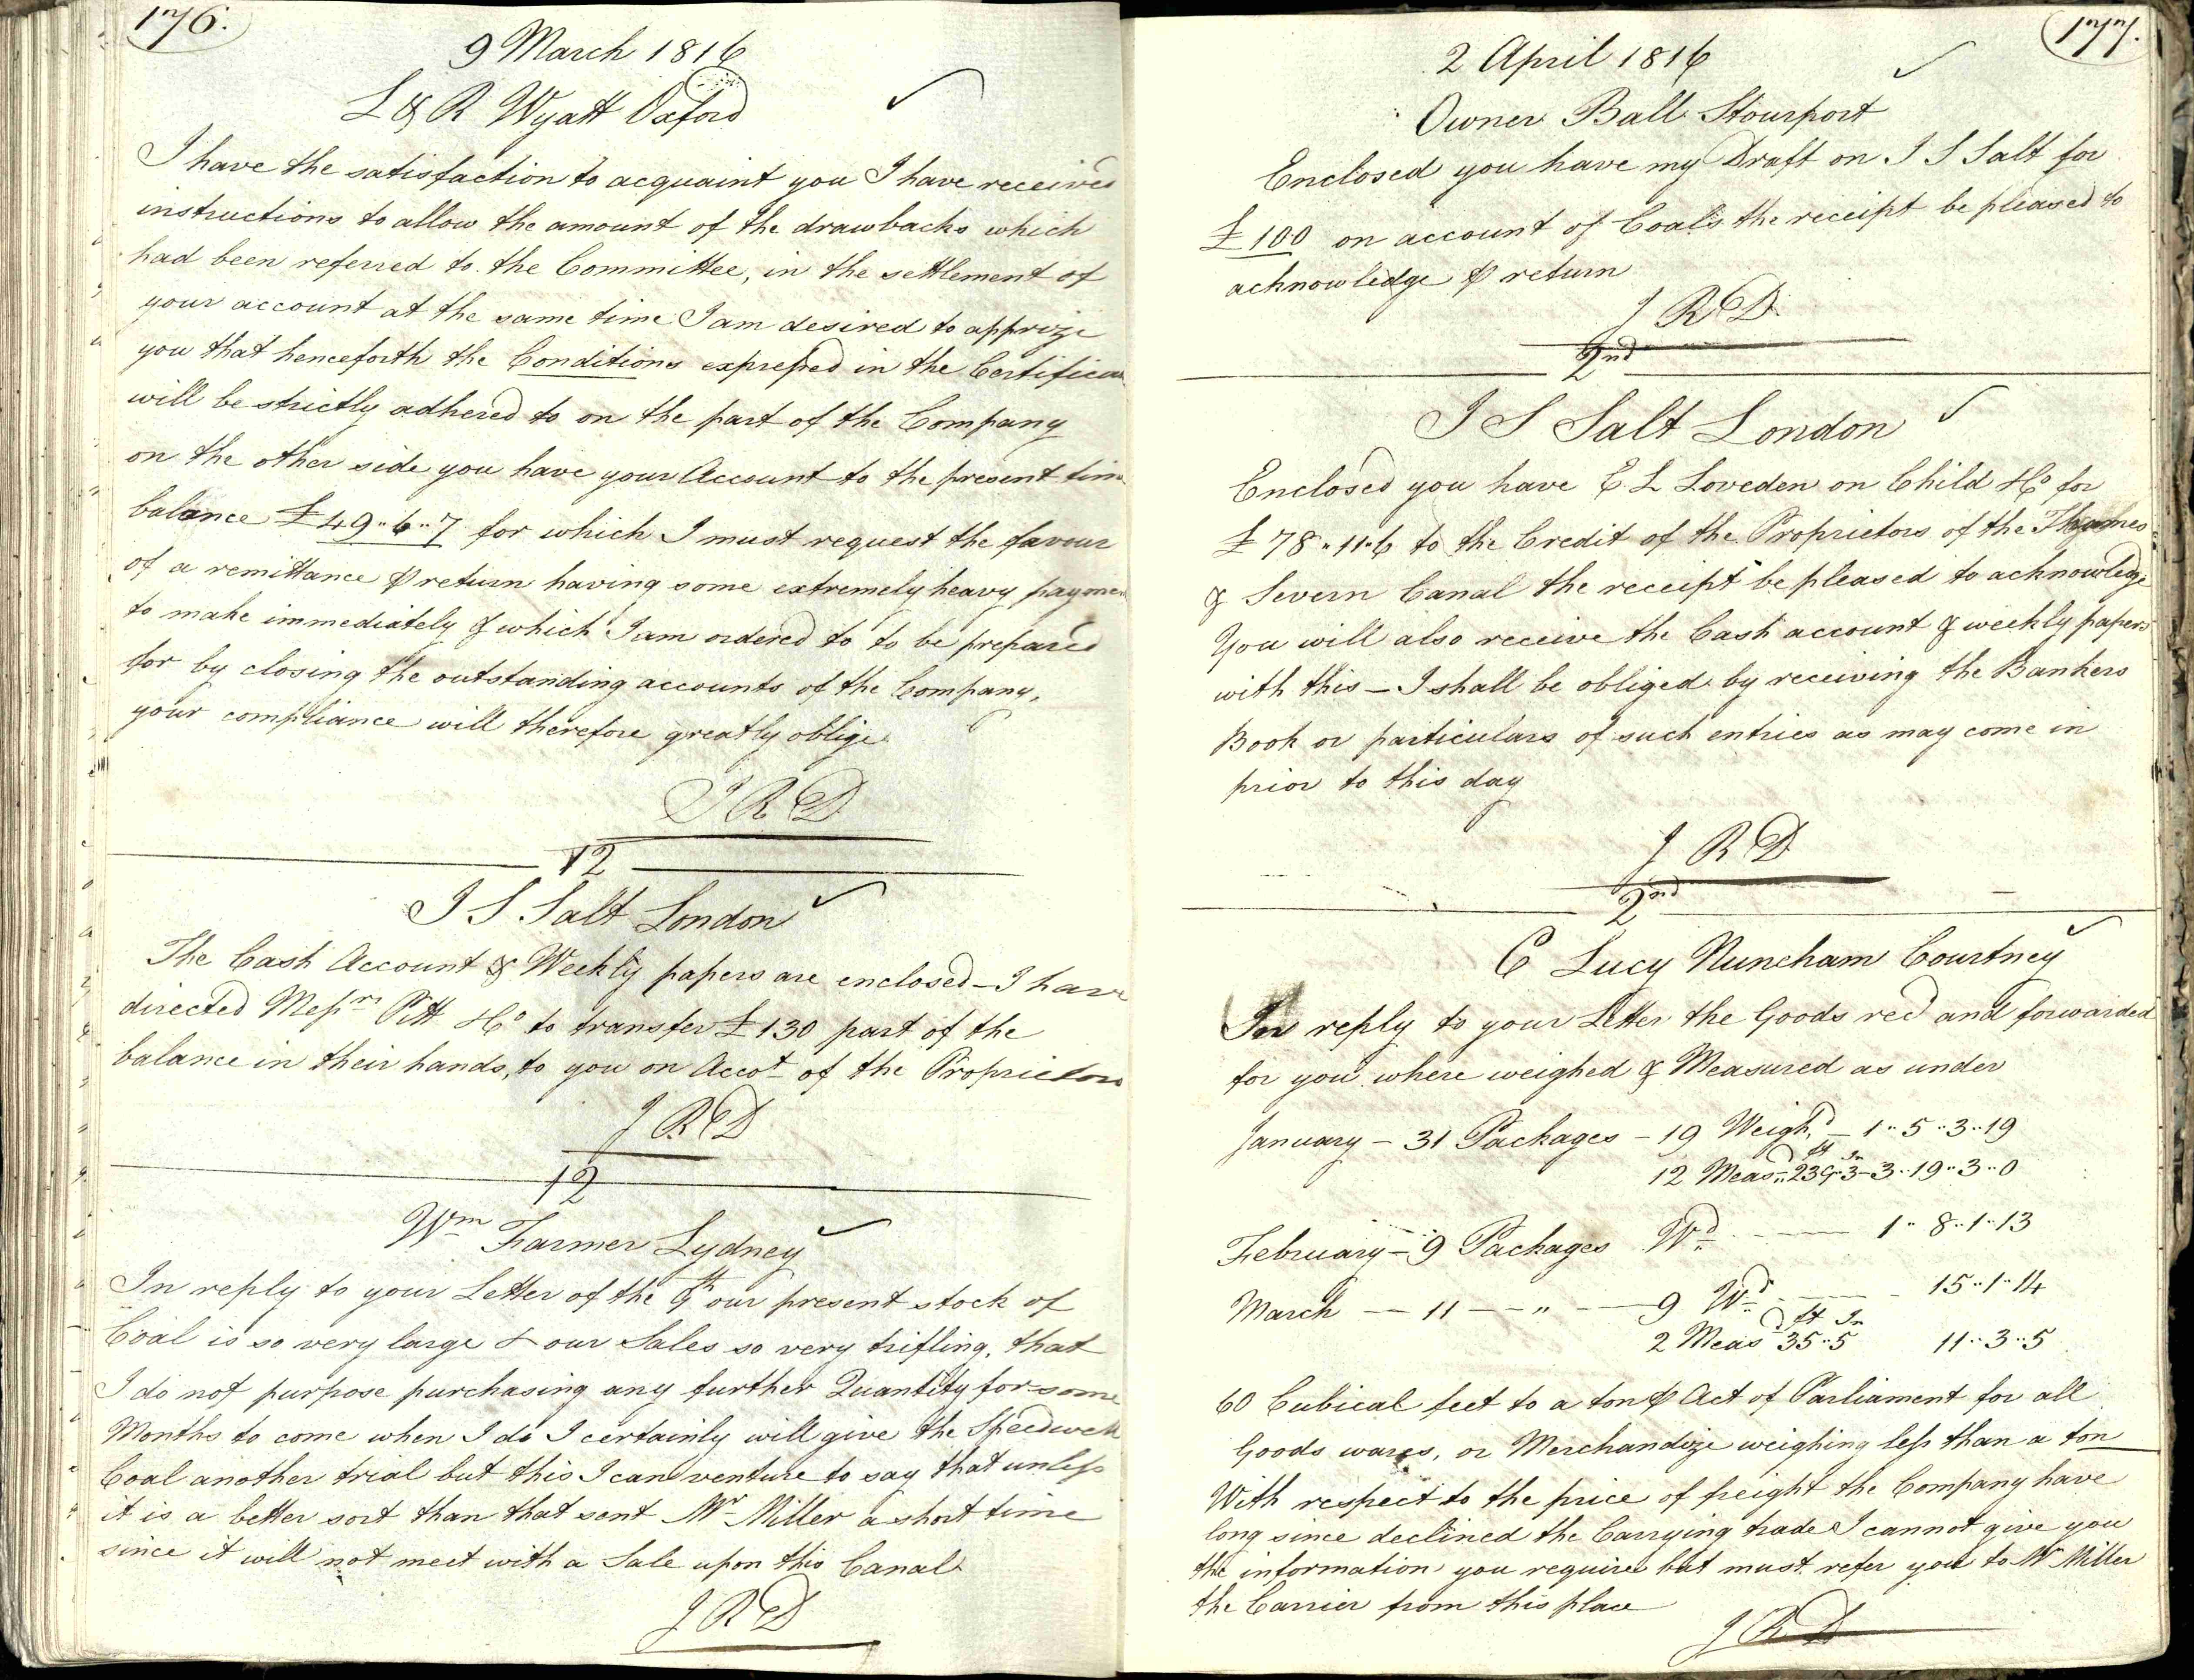 176.
9 March 1816
L & R Wyatt Oxford
I have the satisfaction to acquaint you I have received
instructions to allow the amount of the drawbacks which
had been referred to the Committee, in the settlement of
your account at the same time I am desired to apprize
you that henceforth the Conditions expressed in the Certifica
will be strictly adhered to on the part of the Company
on the other side you have your Account to the present time
balance £49"6"7 for which I must request the favour
of a remittance ⅌ return having some extremely heavy paymen
to make immediately & which I am ordered to to be prepared
for by closing the outstanding accounts of the Company,
your compliance will therefore greatly oblige
J R D
12
J S Salt London
The Cash Account & Weekly papers are enclosed – I have
directed Messrs Pitt & Co to transfer £130 part of the
balance in their hands, to you on Accot of the Proprietors
J R D
12
Wm Farmer Lydney
In reply to your Letter of the 9th our present stock of
Coal is so very large & our Sales so very trifling, that
I do not purpose purchasing any further Quantity for some
Months to come when I do I certainly will give the Speedwell
Coal another trial but this I can venture to say that unless
it is a better sort than that sent Mr Miller a short time
since it will not meet with a Sale upon this Canal
J R D
177.
2 April 1816
Owner Ball Stourport
Enclosed you have my Draft on J S Salt for
£100 on account of Coals the receipt be pleased to
acknowledge ⅌ return
J R D
2nd
J S Salt London
Enclosed you have E. L Loveden on Child & Co for
£78"11"6 to the Credit of the Proprietors of the Thames
& Severn Canal the receipt be pleased to acknowledge
You will also receive the Cash account & weekly papers
with this – I shall be obliged by receiving the Bankers
Book or particulars of such entries as may come in
prior to this day
J R D
2nd
C Lucy Nuneham Courtney
In reply to your Letter the Goods recd and forwarded
for you where weighed & Measured as under
January – 31 Packages – 19 Weighd – 1"5"3"19
12 Measd 239ft"3In – 3"19"3"0
February – 9 Packages Wd – 1"8"1"13
March – 11 – " – 9 Wd – 15"1"14
2 Measd 35ft"5In 11"3"5
60 Cubical feet to a ton ⅌ Act of Parliament for all
Goods wares, or Merchandize weighing less than a ton
With respect to the price of freight the Company have
long since declined the Carrying trade I cannot give you
the information you require but must refer you to Mr Miller
the Carrier from this place
J R D